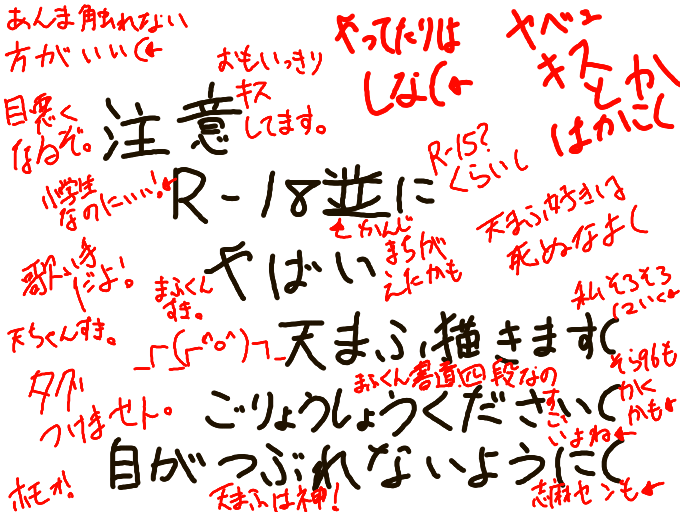 あんま触れない
方がいい(←
おもいっきり
キス
してます。
やってたりは
しな(←
ヤベー
キス
とか
はかに(
目悪く
なるぞ。
注意
R-15?
くらいし
小学生
なのにぃぃ!←
R-18並に
←かんじ
まちが
えたかも
天まふ好きは
死ぬなよ(
歌い手
だよ!
まふくん
すき。
やばい
私そろそろ
天ちくんすき。
_┌(┌^o^)┐_
天まふ描きます(
まふくん書道四段なの
すごい
よね←
そら96も
かく
かも←
タグ
つけません。
ごりょうしょうください(
目がつぶれないように(
ホモォ!
天まふは神!
志麻センも←